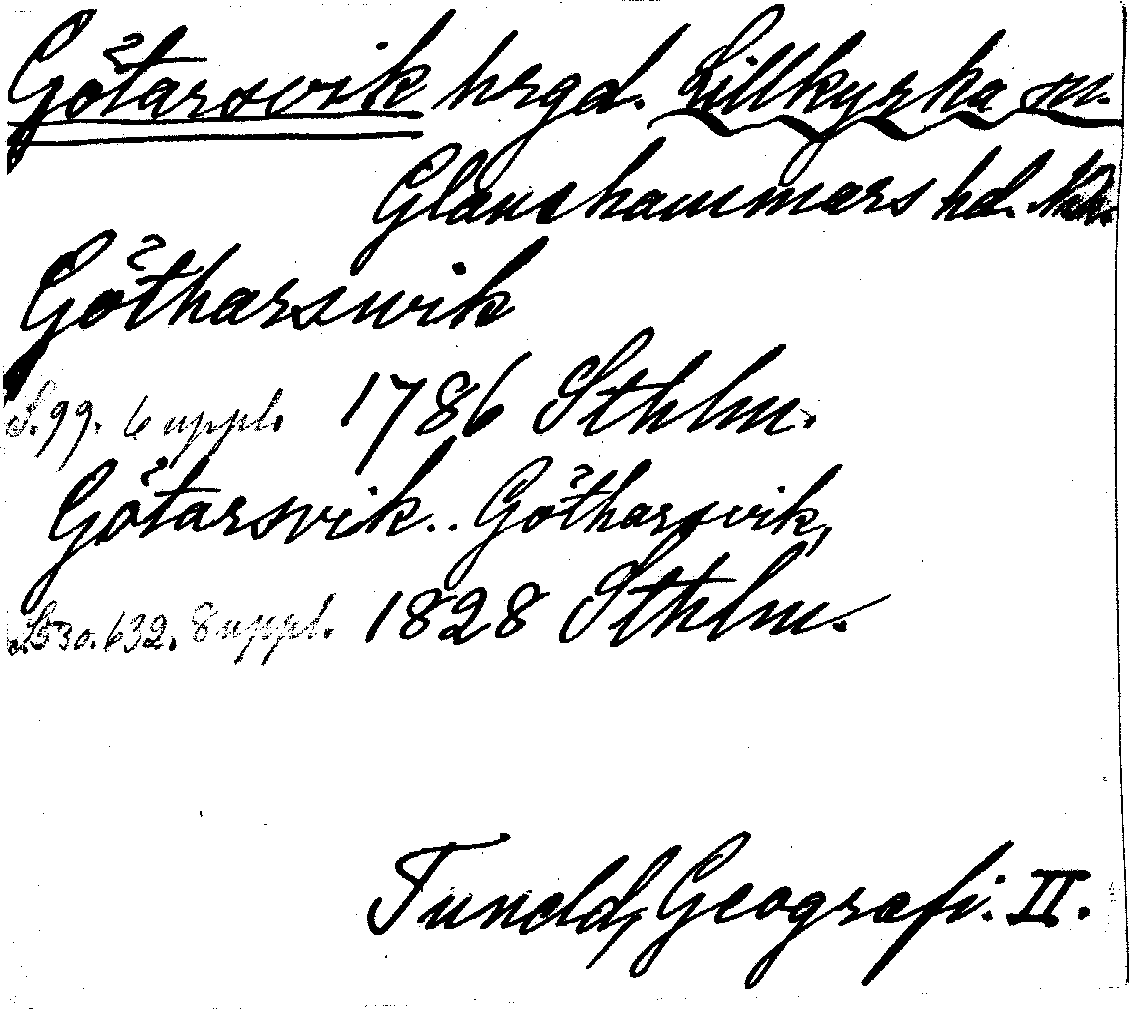 Götarsvik hrgd. Lillkyrka sn.
Glanshammars hd.
Götharswik
S. 99. 6 uppl. 1786 Sthlm.
Götarsvik.. Götharsvik,
S. 530. 632. 8 uppl. 1828 Sthlm.
Tuneld, Geografi. II.